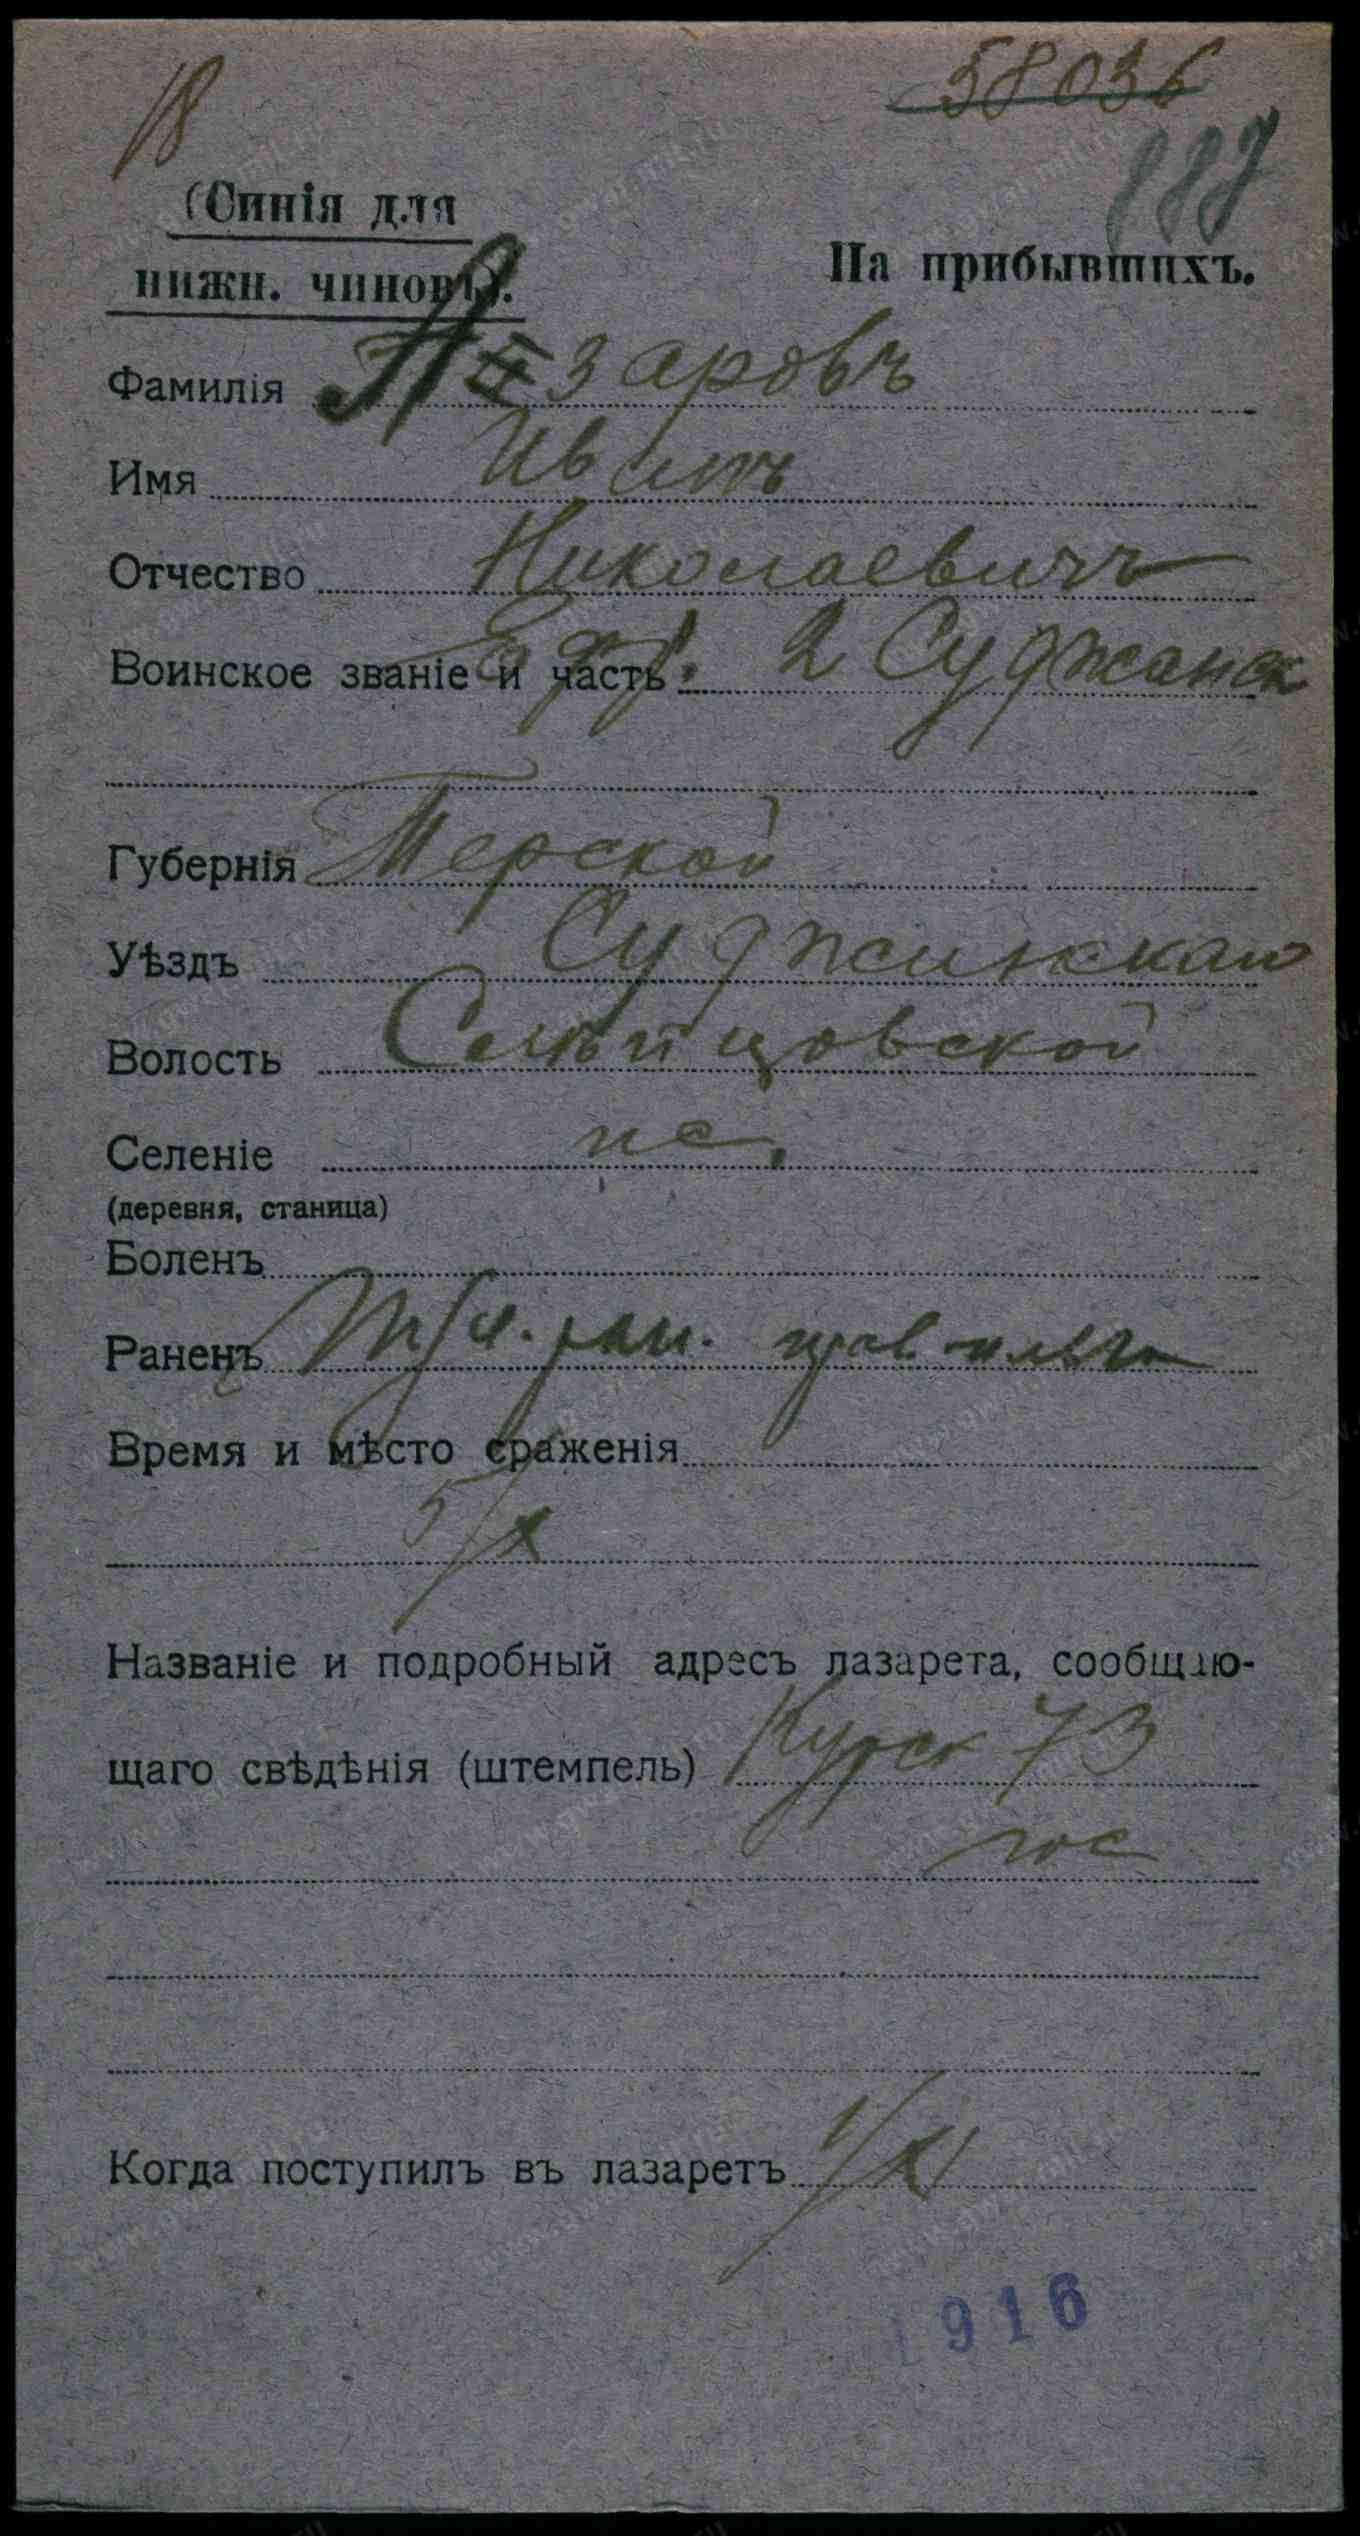 18
58036
887
(Синія для
нижн. чиновъ).
На прибывшихъ.
Фамилія Назаровъ
Имя Иванъ
Отчество Николаевичъ
Воинское званіе и часть 2 Суджанск
Губернія Терской
Уѣздъ Суджинскаго
Волость Слѣпцовской
Селеніе
(деревня, станица)
Боленъ
Раненъ Тяж. ран. прав.
Время и мѣсто сраженія
5/X
Названіе и подробный адресъ лазарета, сообщаю-
щаго свѣдѣнія (штемпель) Курск 73
гос
Когда поступилъ въ лазаретъ 1/XI
1916